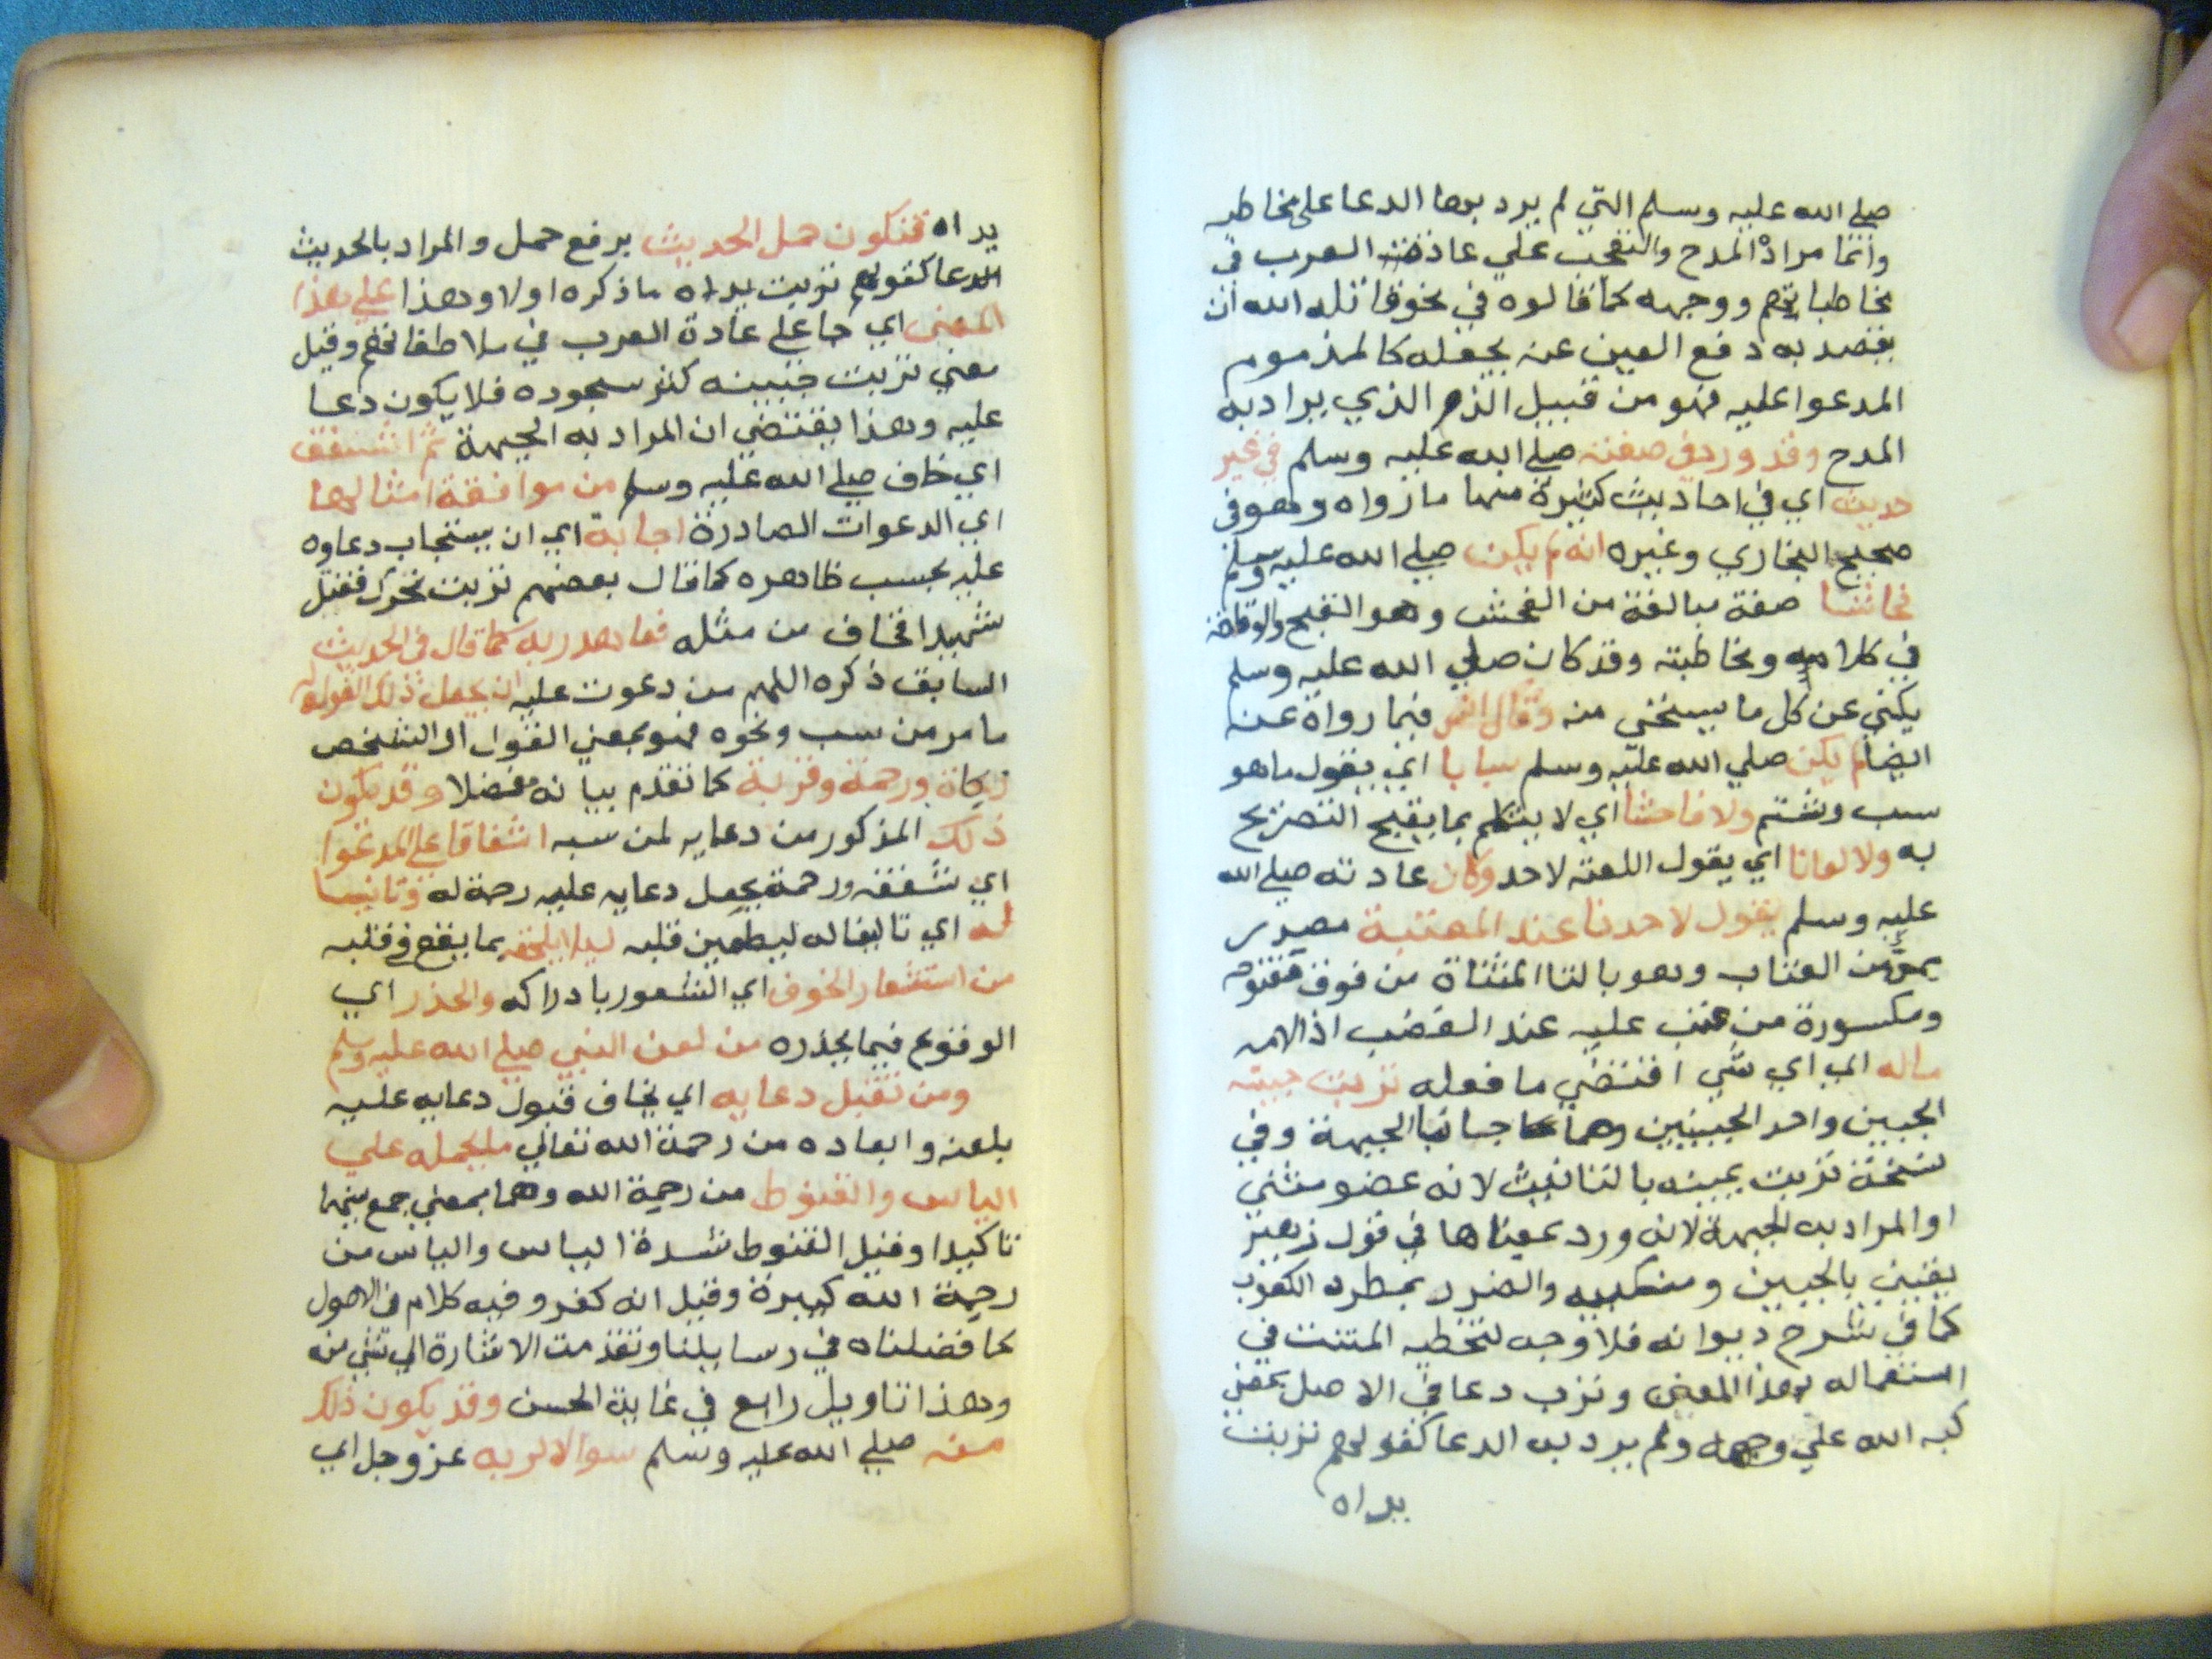 صلي الله عليه وسلم التي لم يرد بها الدعا على مخاطبه
وانما مراده المدح والتعجب علي عادة العرب في
مخاطباتهم ووجهه كما قالوه في نحو قاتله الله ان
يقصد به دفع العين عنه بجعله كالمذموم
المدعوا عليه فهو من قبيل الذم الذي يراد به
المدح وقد ورد في صفته صلي الله عليه وسلم في غير
حديث اي في احاديث كثيرة منها ما رواه وهو في
صحيح البخاري وغيره انه لم يكن صلي الله عليه وسلم
فحاشا صفة مبالغة من الفحش وهو القبيح والوقاحة
في كلامه ومخاطبته وقد كان صلي الله عليه وسلم
يكني عن كل ما يستحي منه وقال انس فيما رواه عنه
ايضا لم يكن صلي الله عليه وسلم سبابا اي يقول ما هو
سب وشتم ولا فاحشا اي لا يتكلم بما يقبح التصريح
به ولا لعانا اي يقول اللعنه لاحد وكان عادته صلي الله
عليه وسلم يقول لاحدنا عند المعتبة مصدر
من العتاب وهو بالتا المثناة من فوق مفتوحه
ومكسورة من عتب عليه عند الغضب اذا لامه
ماله اي اي شي اقتضي ما فعله تربت جبينه
الجبين واحد الجبينين وهما جانبا الجبهة وفي
نسخة تربت يمينه بالتانيث لانه عضو مثني
او المراد به الجبهة لانه ورد بمعناها في قول زهير
يقيني بالجبين ومنكبيه والضرد بمطرد الكعوب
كما في شرح ديوانه فلا وجه لتخطيه المتنبي في
استعماله بهذا المعني وترب دعا في الاصل بمعني
كبه الله علي وجهه ولم يرد به الدعا كقولهم تربت
يداه
يداه فتكون حمل الحديث برفع حمل والمراد بالحديث
الدعا كقولهم تربت يداه ما ذكره اولا وهذا علي هذا
المعني اي جا علي عادة العرب في ملاطفاتهم وقيل
معني تربت جبينه كثر سجوده فلا يكون دعا
عليه وهذا يقتضي ان المراد به الجبهة ثم اشفق
اي خاف صلي الله عليه وسلم من موافقة امثالها
اي الدعوات الصادرة اجابة اي ان يستجاب دعاوه
عليه بحسب ظاهره كما قال بعضهم تربت نحرك فقتل
شهيدا فخاف من مثله فعاهد ربه كما قال في الحديث
السابق ذكره اللهم من دعوت عليه ان يجعل ذلك القول له
ما مر من سب ونحوه فهو بمعني القول او الشخص
زكاة ورحمة وقربة كما تقدم بيانه مفصلا وقد يكون
ذلك المذكور من دعايه لمن سبه اشفاقا علي المدعوا
اي شفقه ورحمة بجعل دعايه عليه رحمة له وتانيسا
له اي تاليفا له ليطمين قلبه ليلا يلحقه بما يقع في قلبه
من استشعار الخوف اي الشعور بادراكه والحذر اي
الوقوع فيما يحذره من لعن النبي صلي الله عليه وسلم
ومن تقبل دعايه اي يخاف قبول دعايه عليه
بلعنه وابعاده من رحمة الله تعالي ما يحمله علي
الياس والقنوط من رحمة الله وهما بمعني جمع بينهما
تاكيدا وقيل القنوط شدة الياس والياس من
رحمة الله كبيرة وقيل انه كفر وفيه كلام في الاصول
كما فصلناه في رسايلنا وتقدمت الاشارة الي شي منه
وهذا تاويل رابع في غاية الحسن وقد يكون ذلك
منه صلي الله عليه وسلم سوالا لربه عز وجل اي